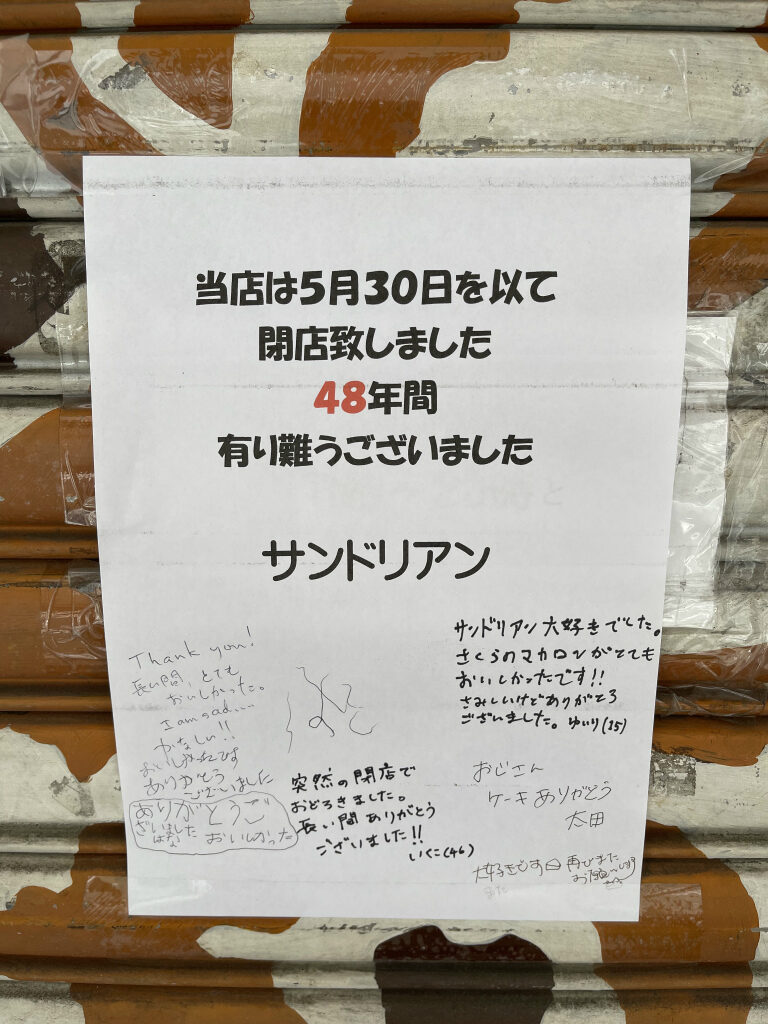 当店は5月30日を以て
閉店致しました
48年間
有り難うございました
サンドリアン
Thank you!
長い間、とても
おいしかった。
I am sad....
かなしい!!
ありがとう
ございました
ありがとうご
ざいました
はな
おいしかった
突然の閉店で
おどろきました。
長い間ありがとう
ございました!!
いくこ(46)
サンドリアン大好きでした。
さくらのマカロンがとても
おいしかったです!!
さみしいけどありがとう
ございました。ゆいり(15)
おじさん
ケーキありがとう
太田
大好きです
再びまた
お願いします